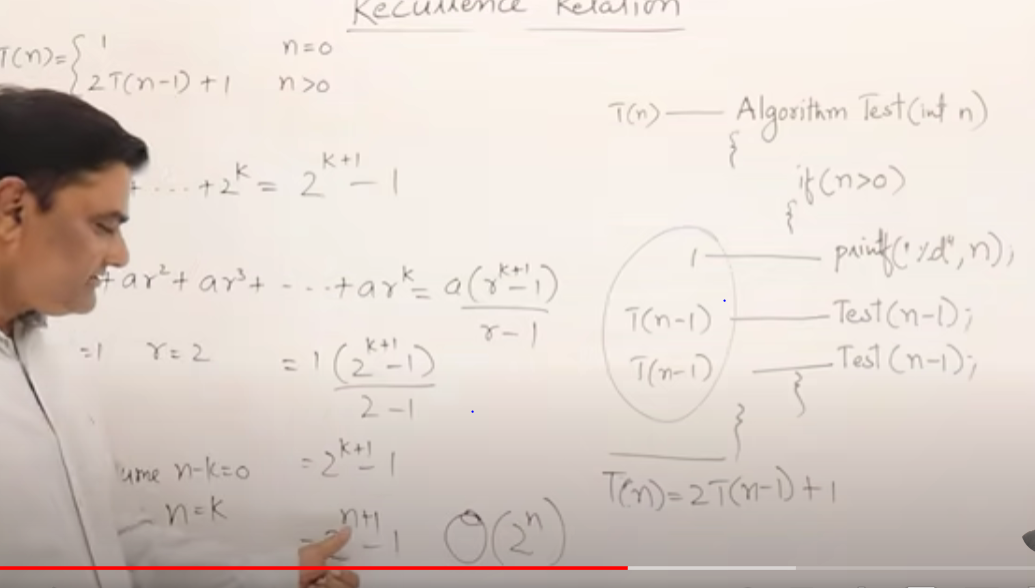 Recurrence Relation
T(n)= { 1 n=0
2T(n-1)+1 n>0
+ ... +2^k = 2^(k+1) - 1
+ar²+ar³+ - ... +ar^k = a(r^(k+1)-1)
r-1
=1 r=2 = 1(2^(k+1)-1)
2-1
ume n-k=0 = 2^(k+1) - 1
n=k = 2^(n+1) - 1 O(2^n)
T(n) — Algorithm Test(int n)
{
if(n>0)
{
1 — printf("%d", n);
T(n-1) — Test(n-1);
T(n-1) — Test(n-1);
}
}
T(n)=2T(n-1)+1